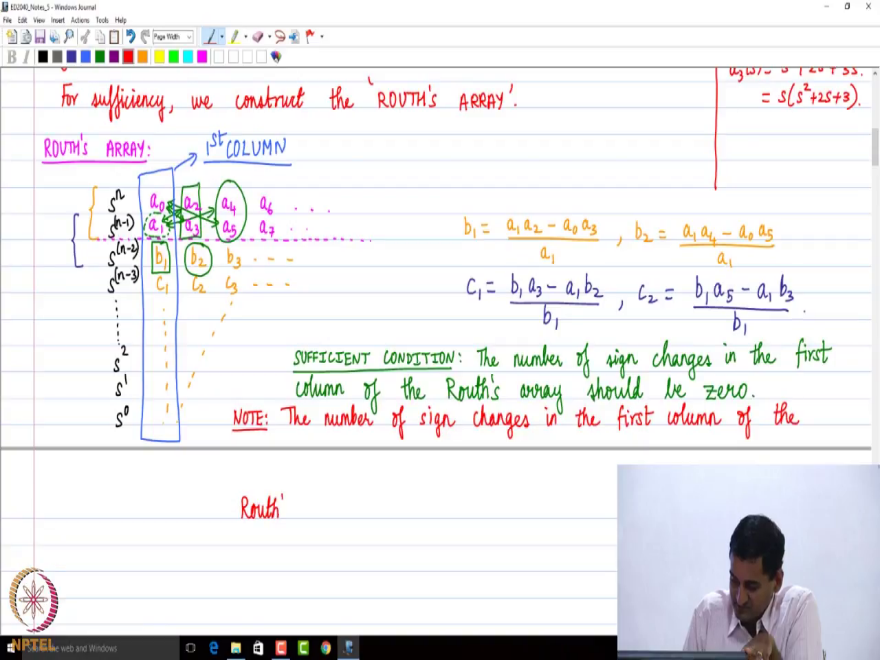 ED2040_Notes_5 - Windows Journal
File Edit View Insert Actions Tools Help
Page Width
B I
For sufficiency, we construct the 'ROUTH'S ARRAY'.
= s(s²+2s+3).
ROUTH'S ARRAY: 1ST COLUMN
sⁿ a₀ a₂ a₄ a₆ . . .
s⁽ⁿ⁻¹⁾ a₁ a₃ a₅ a₇ . .
s⁽ⁿ⁻²⁾ b₁ b₂ b₃ . - - -
s⁽ⁿ⁻³⁾ c₁ c₂ c₃ - - -
b₁ = (a₁a₂ - a₀a₃)/a₁ , b₂ = (a₁a₄ - a₀a₅)/a₁
c₁ = (b₁a₃ - a₁b₂)/b₁ , c₂ = (b₁a₅ - a₁b₃)/b₁ .
s²
s¹
s⁰
SUFFICIENT CONDITION: The number of sign changes in the first
column of the Routh's array should be zero.
NOTE: The number of sign changes in the first column of the
Routh'
NPTEL
the web and Windows